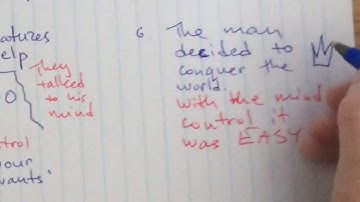 atures
elp
They
talked
to his
mind
O
ntrol
your
vants"
6. The man
decided to
conquer the
world.
with the mind
control it
was EASY